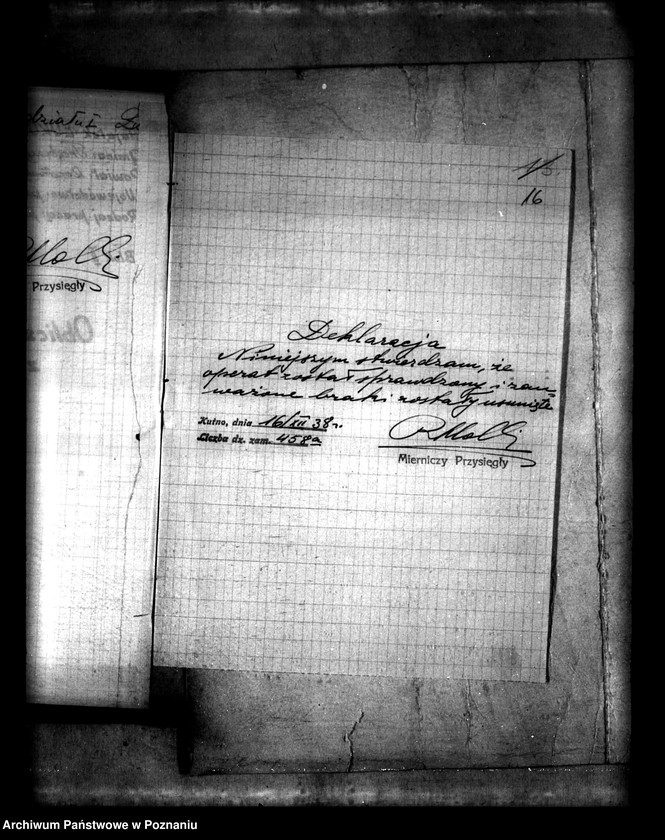 działu I
Przysięgły
16
Deklaracja
Niniejszym stwierdzam, że
operat został sprawdzony i zau-
ważone braki zostały usunięte
Kutno, dnia 16/XII 38 r.
Liczba dz. zam. 458a
Mierniczy Przysięgły
Archiwum Państwowe w Poznaniu